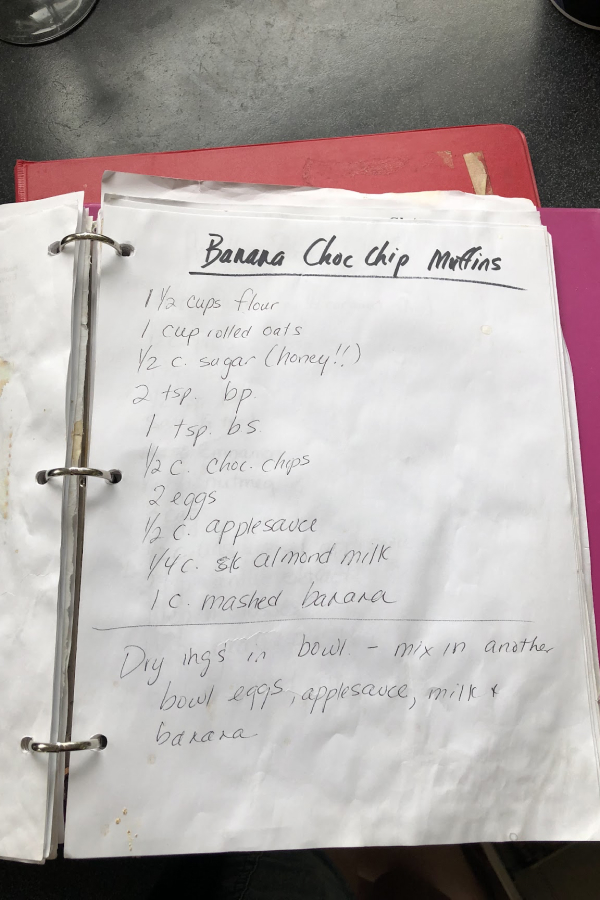 Banana Choc Chip Muffins
1 1/2 cups flour
1 cup rolled oats
1/2 c. sugar (honey!!)
2 tsp. bp.
1 tsp. bs.
1/2 c. choc. chips
2 eggs
1/2 c. applesauce
1/4 c. almond milk
1 c. mashed banana
Dry ings in bowl - mix in another
bowl eggs, applesauce, milk &
banana